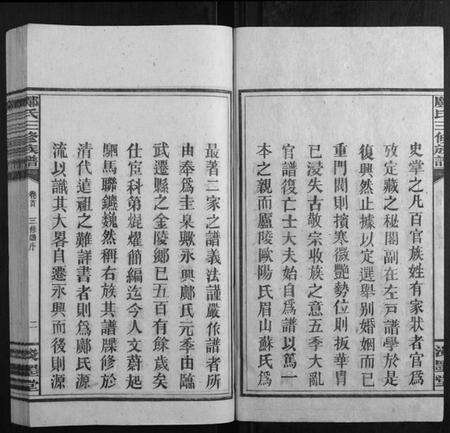 鄺氏三修族譜
史掌之凡百官族姓有家狀者官爲
攷定藏之秘閣副在左戸譜學於是
復興然止據以定選舉別婚姻而已
重門閥則擯寒微艷勢位則扳華胄
已浸失古敬宗收族之意五季大亂
官譜復亡士大夫始自爲譜以篤一
本之親而廬陵歐陽氏眉山蘇氏爲
最著二家之譜義法謹嚴作譜者所
由奉爲圭臬歟永興鄺氏元季由臨
武遷縣之金陵鄉已五百有餘歲矣
仕宦科第焜燿簡編迄今人文蔚起
駟馬聯鑣巍然稱右族其譜牒修於
清代遠祖之難詳書者則爲鄺氏源
流以識其大畧自遷永興而後則源
鄺氏三修族譜
卷首
三修譜序
二
堂